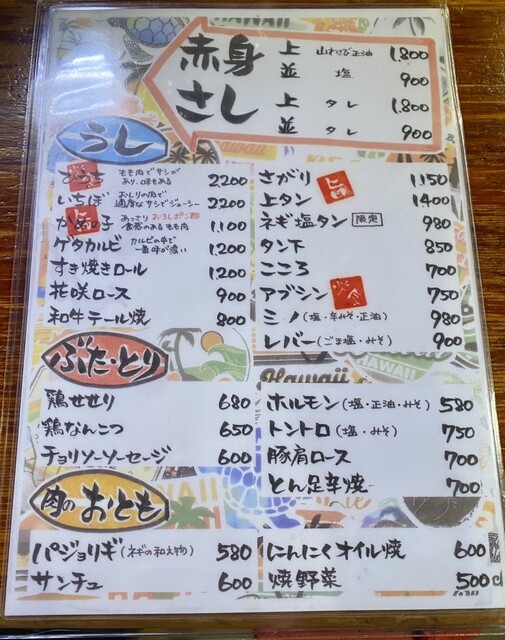 赤身 上 山わさび正油 1,800
並 塩 900
さし 上 タレ 1,800
並 タレ 900
うし
ひうち もも肉でサシがあり、味もある 2,200
いちぼ おしりの肉で適度なサシでジューシー 2,200
かめの子 あっさりおろしポン酢 食感のあるもも肉 1,100
ゲタカルビ カルビの中で一番味が濃い 1,200
すき焼きロール 1,200
花咲ロース 900
和牛テール焼 800
さがり 1,150
上タン 1400
ネギ塩タン 限定 980
タン下 850
こころ 700
アブシン 750
ミノ(塩・辛みそ・正油) 980
レバー(ごま塩・みそ) 900
ぶた・とり
鶏せせり 680
鶏なんこつ 650
チョリソーソーセージ 600
ホルモン(塩・正油・みそ) 580
トントロ(塩・みそ) 750
豚肩ロース 700
とん足辛焼 700
肉のおとも
パジョリギ(ネギの和え物) 580
サンチュ 600
にんにくオイル焼 600
焼野菜 500
HAWAII
Hawaii
HAWAII